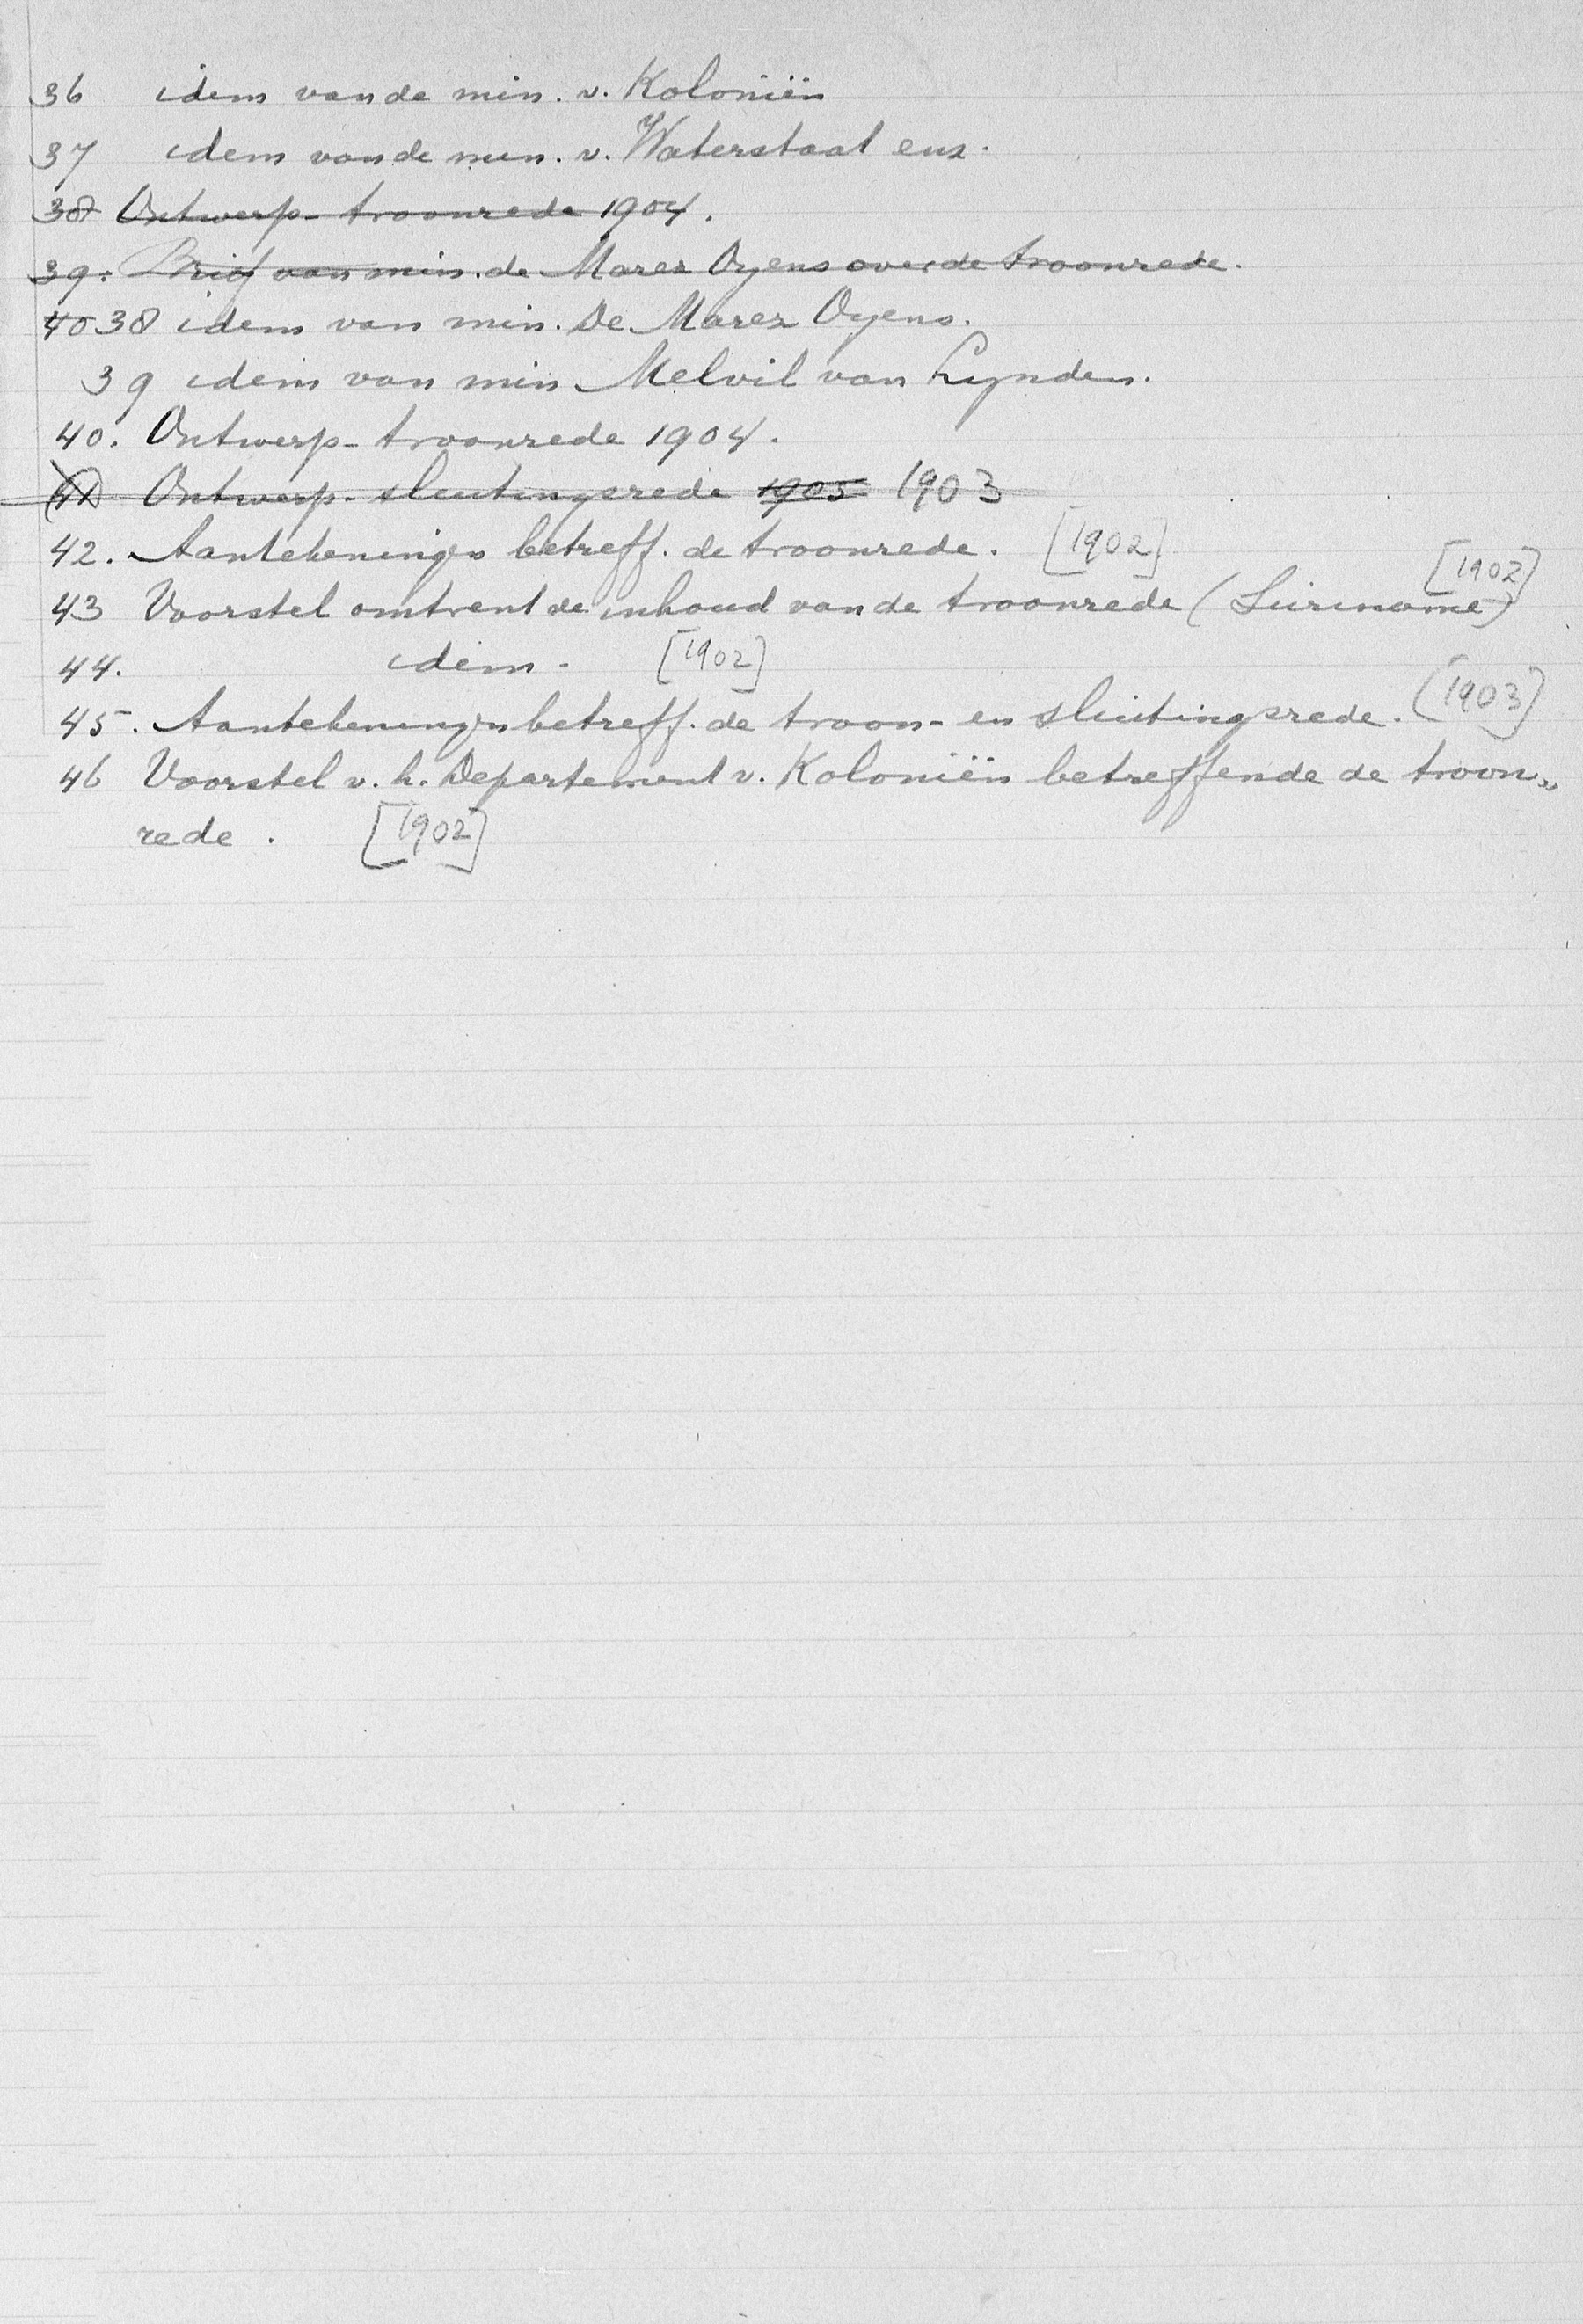 36 idem van de min. v. Koloniën
37 idem van de min. v. Waterstaat enz.
38 Ontwerp-troonrede 1904.
39. Brief van min. de Marez Oyens over de troonrede.
40 38 idem van min. De Marez Oyens.
39 idem van min Melvil van Lynden.
40. Ontwerp-troonrede 1904.
41 Ontwerp-sluitingsrede 1905 1903
42. Aantekeningen betreff. de troonrede. [1902]
43 Voorstel omtrent de inhoud van de troonrede (Suriname) [1902]
44. idem. [1902]
45. Aantekeningen betreff. de troon- en sluitingsrede. (1903]
46 Voorstel v. h. Departement v. Koloniën betreffende de troon„
rede. [1902]